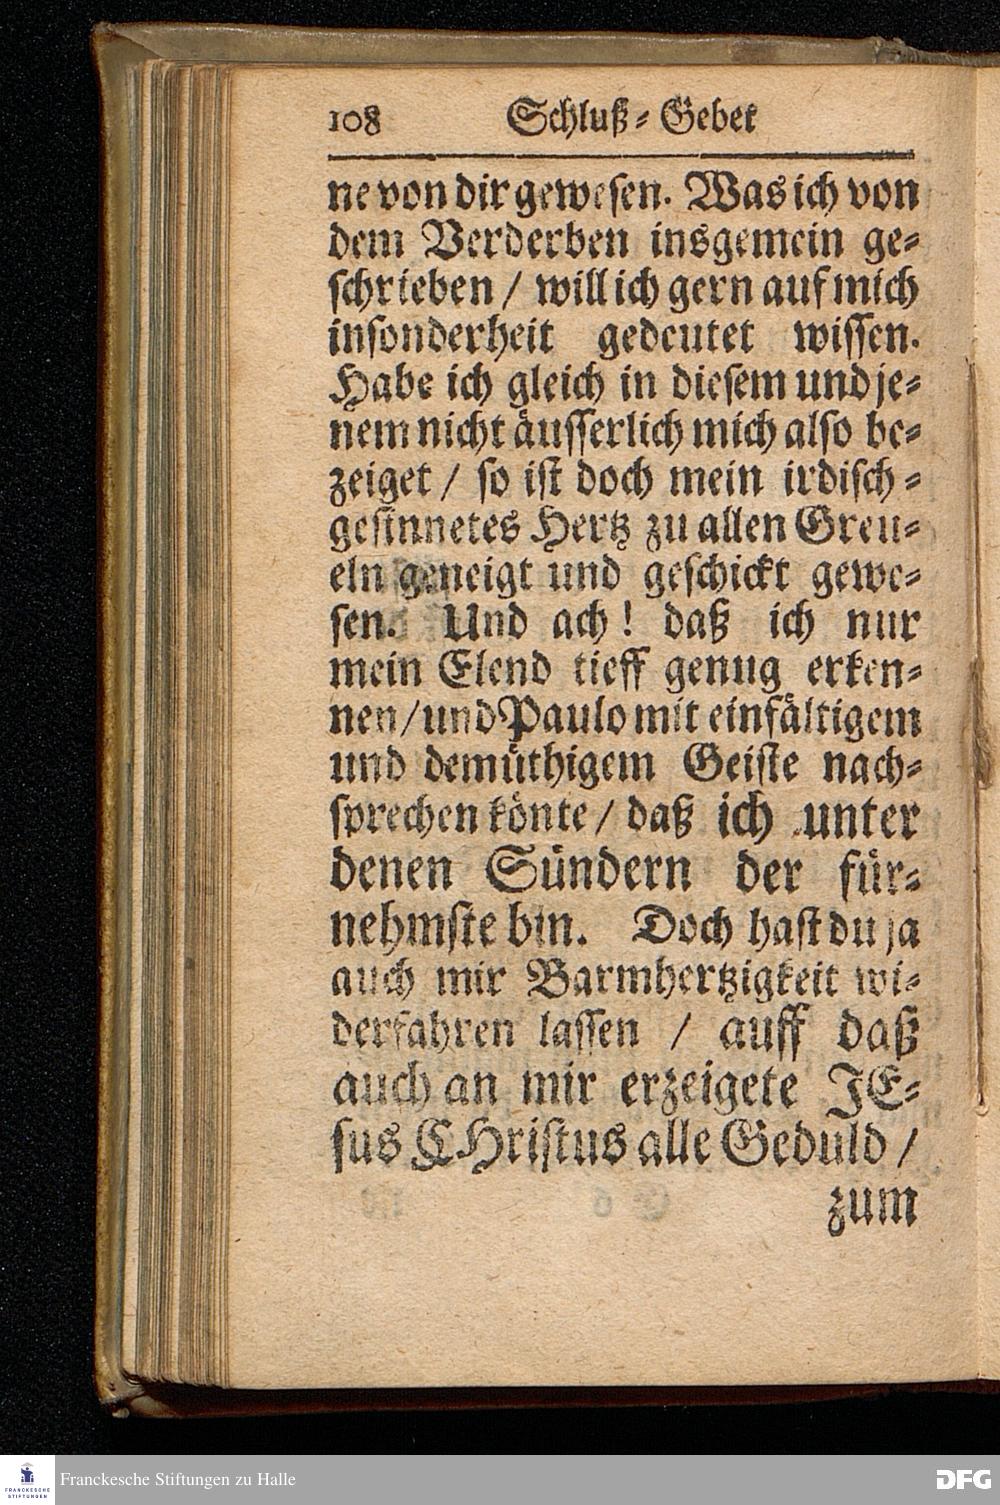 108 Schluß-Gebet
ne von dir gewesen. Was ich von
dem Verderben insgemein ge-
schrieben / will ich gern auf mich
insonderheit gedeutet wissen.
Habe ich gleich in diesem und je-
nem nicht äusserlich mich also be-
zeiget / so ist doch mein irdisch-
gesinnetes Hertz zu allen Greu-
eln geneigt und geschickt gewe-
sen. Und ach! daß ich nur
mein Elend tieff genug erken-
nen/und Paulo mit einfältigem
und demüthigem Geiste nach-
sprechen könte / daß ich unter
denen Sündern der für-
nehmste bin. Doch hast du ja
auch mir Barmhertzigkeit wi-
derfahren lassen / auff daß
auch an mir erzeigete JE-
sus CHristus alle Geduld /
zum
FRANCKESCHE
STIFTUNGEN
Franckesche Stiftungen zu Halle
DFG